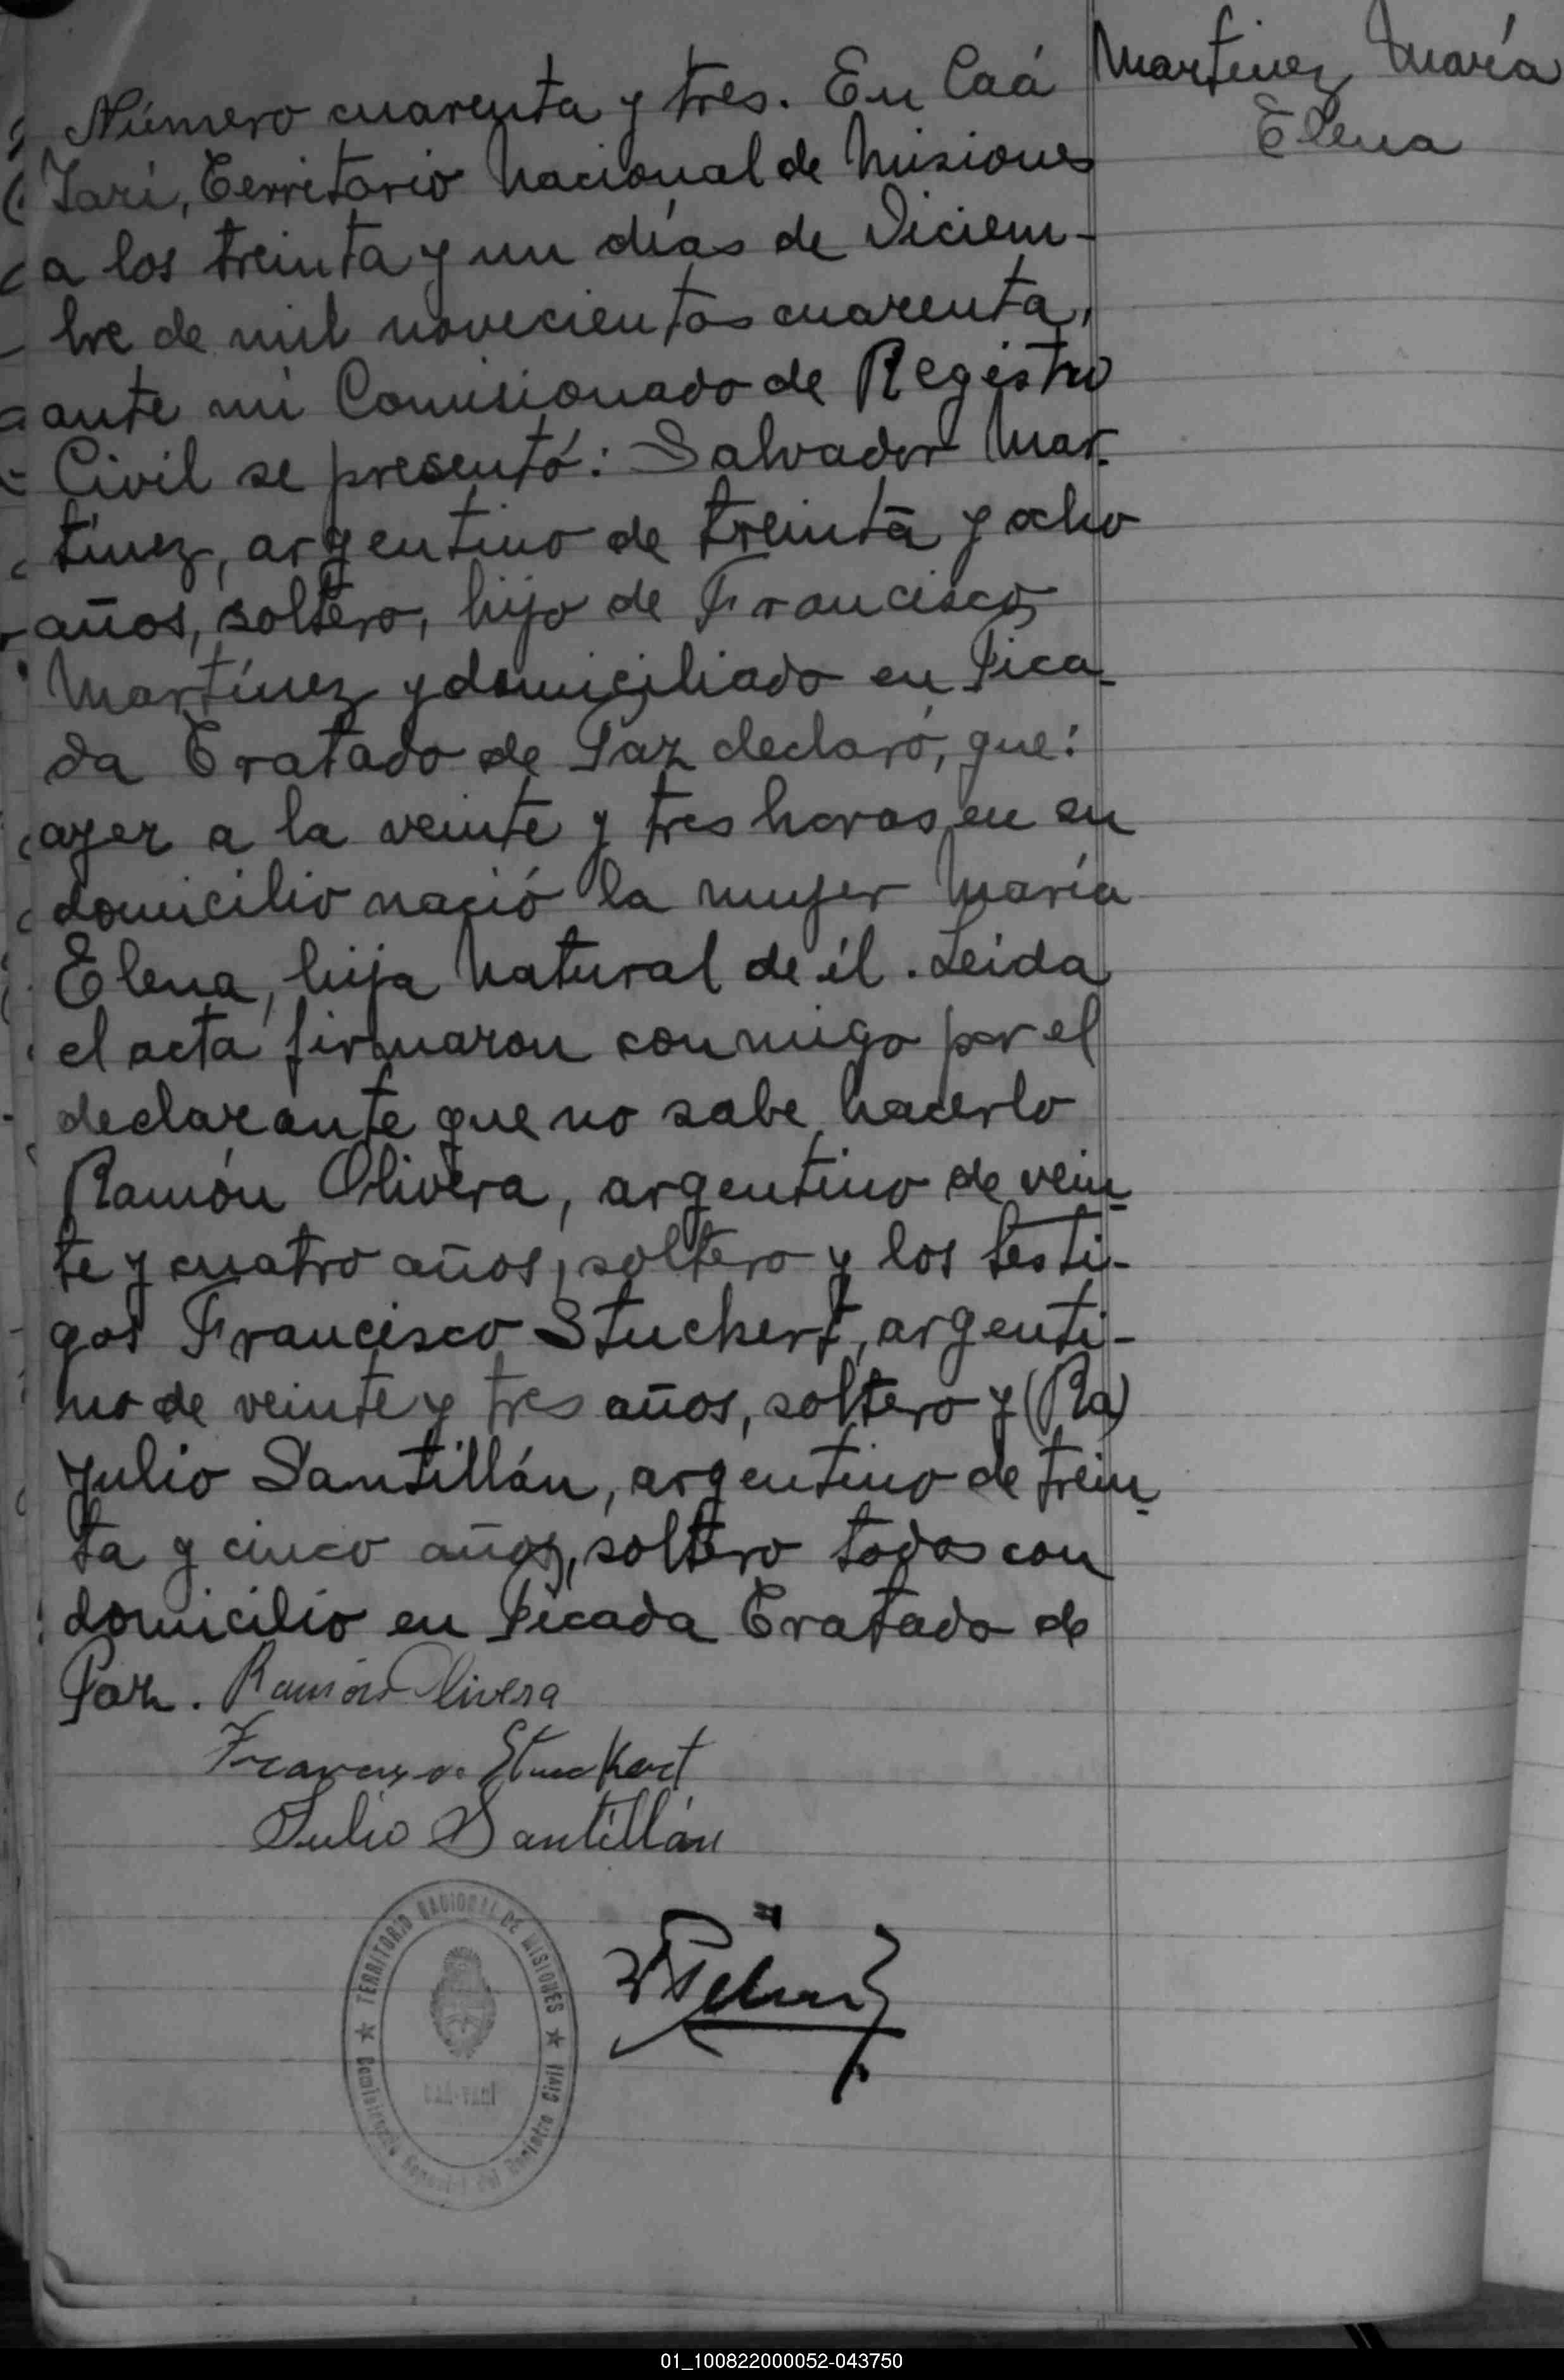 Martinez María
Elena
Número cuarenta y tres. En Caá
Yarí, Territorio Nacional de Misiones
a los treinta y un días de Diciem-
bre de mil novecientos cuarenta,
ante mi Comisionado de Registro
Civil se presentó: Salvador Mar-
tínez, argentino de treinta y ocho
años, soltero, hijo de Francisco
Martínez y domiciliado en Pica-
da Tratado de Paz declaró, que:
ayer a la veinte y tres horas en su
domicilio nació la mujer María
Elena, hija natural de él. Leida
el acta firmaron conmigo por el
declarante que no sabe hacerlo
Ramón Olivera, argentino de vein-
te y cuatro años, soltero y los testi-
gos Francisco Stuckert, argenti-
no de veinte y tres años, soltero y (Ra)
Julio Santillán, argentino de trein-
ta y cinco años, soltero todos con
domicilio en Picada Tratado de
Paz. Ramón Olivera
Francisco Stuckert
Julio Santillán
TERRITORIO NACIONAL DE MISIONES
CAÁ-YARÍ
Registro Civil
01_100822000052-043750